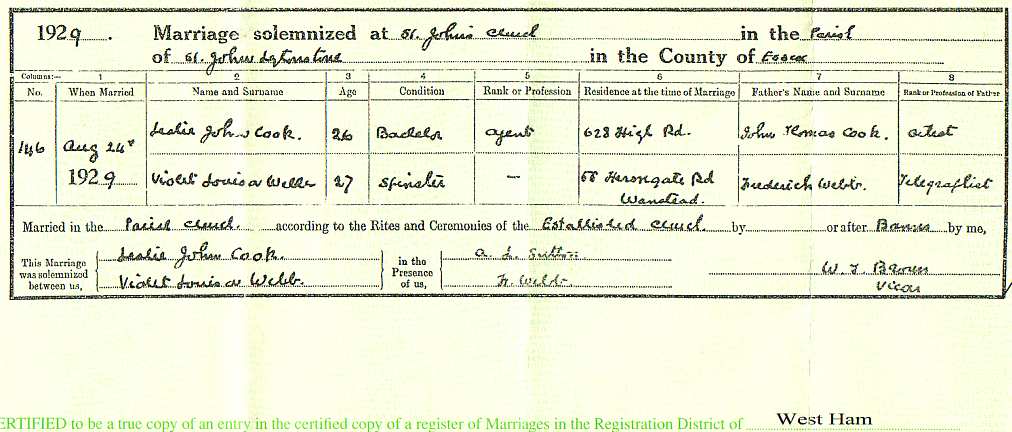 1929. Marriage solemnized at St. John's Church in the Parish
of St. John Leytonstone in the County of Essex
Columns:— 1 2 3 4 5 6 7 8
No. When Married Name and Surname Age Condition Rank or Profession Residence at the time of Marriage Father's Name and Surname Rank or Profession of Father
146 Aug 24th Leslie John Cook. 26 Bachelor agent 628 High Rd. John Thomas Cook. artist
1929 Violet Louisa Webb 27 Spinster — 58 Herongate Rd Frederick Webb. Telegraphist
Wanstead.
Married in the Parish Church. according to the Rites and Ceremonies of the Established Church. by or after Banns by me,
This Marriage was solemnized between us, Leslie John Cook. in the Presence of us, A. L. Sutton
Violet Louisa Webb. F. Webb W. J. Brown
Vicar
CERTIFIED to be a true copy of an entry in the certified copy of a register of Marriages in the Registration District of West Ham